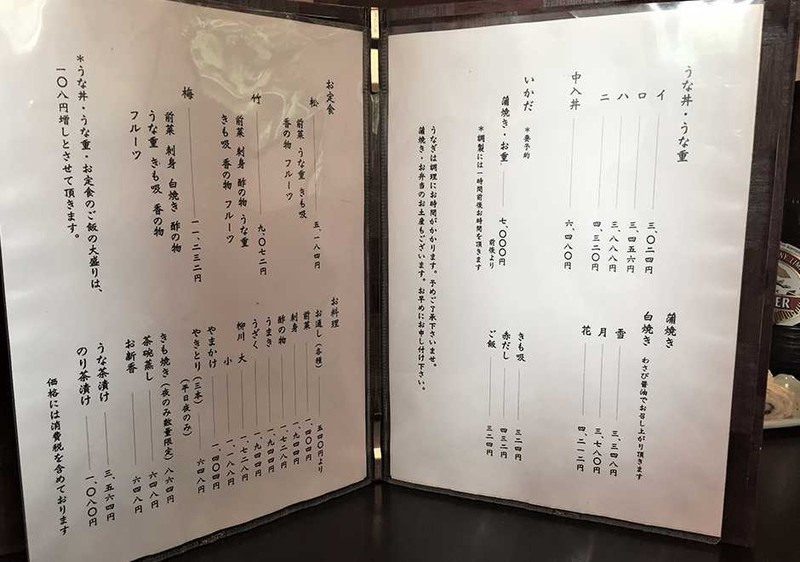 うな丼・うな重
イ 三、〇二四円
ロ 三、四五六円
ハ 三、八八八円
ニ 四、三二〇円
中入丼 六、四八〇円
いかだ ＊要予約
蒲焼き・お重 七、〇〇〇円
前後より
＊調製には一時間前後お時間を頂きます
うなぎは調理にお時間がかかります。予めご了承下さいませ。
蒲焼き・お弁当のお土産もございます。お早めにお申し付け下さい。
蒲焼き
白焼き わさび醤油でお召し上がり頂きます
雪 三、三四八円
月 三、七八〇円
花 四、二一二円
きも吸 三二四円
赤だし 四三二円
ご飯 三二四円
お定食
松 五、一八四円
前菜 うな重 きも吸
香の物 フルーツ
竹 九、〇七二円
前菜 刺身 酢の物 うな重
きも吸 香の物 フルーツ
梅 一一、二三二円
前菜 刺身 白焼き 酢の物
うな重 きも吸 香の物
フルーツ
＊うな丼・うな重・お定食のご飯の大盛りは、
一〇八円増しとさせて頂きます。
お料理
お通し（各種） 五四〇円より
前菜
刺身
酢の物
うまき
うざく
柳川 大 一、七二八円
小 一、一八八円
やまかけ
やきとり（三本） 六四八円
（平日夜のみ）
きも焼き（夜のみ数量限定） 八六四円
茶碗蒸し 六四八円
お新香 六四八円
うな茶漬け 三、五六四円
のり茶漬け 一、〇八〇円
価格には消費税を含めております